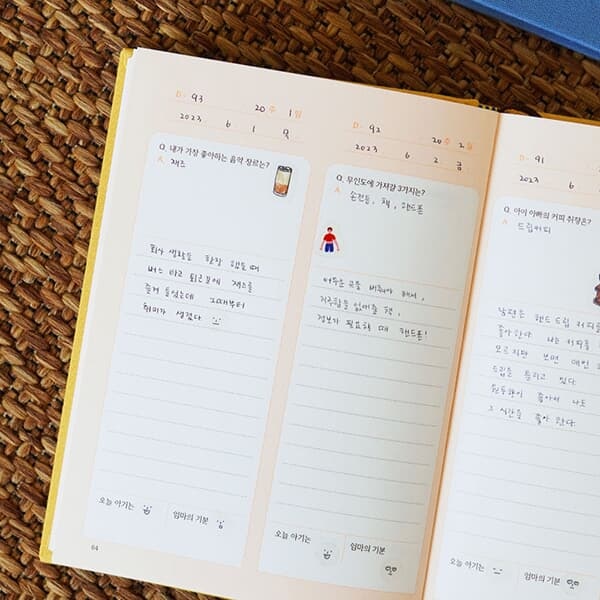 D- 93 20주 1일
2023 6 1 목
Q. 내가 가장 좋아하는 음악 장르는?
A. 재즈
회사 생활을 한창 했을 때
버스 타고 퇴근길에 재즈를
즐겨 들었는데 그때부터
취미가 생겼다
오늘 아기는
엄마의 기분
64
D- 92 20주 2일
2023 6 2 금
Q. 무인도에 가져갈 3가지는?
A. 손전등, 책, 핸드폰
어두운 곳을 비춰야 해서,
지루함을 없애줄 책,
정보가 필요할 때 핸드폰!
오늘 아기는
엄마의 기분
D- 91
2023 6
Q. 아이 아빠의 커피 취향은?
A. 드립커피
남편은 핸드드립 커피를
좋아한다. 나는 커피를
모르지만 보면 매일
드립을 들리고 있다.
원두향이 좋아서 나도
그 시간을 좋아한다.
오늘 아기는
엄마의 기분